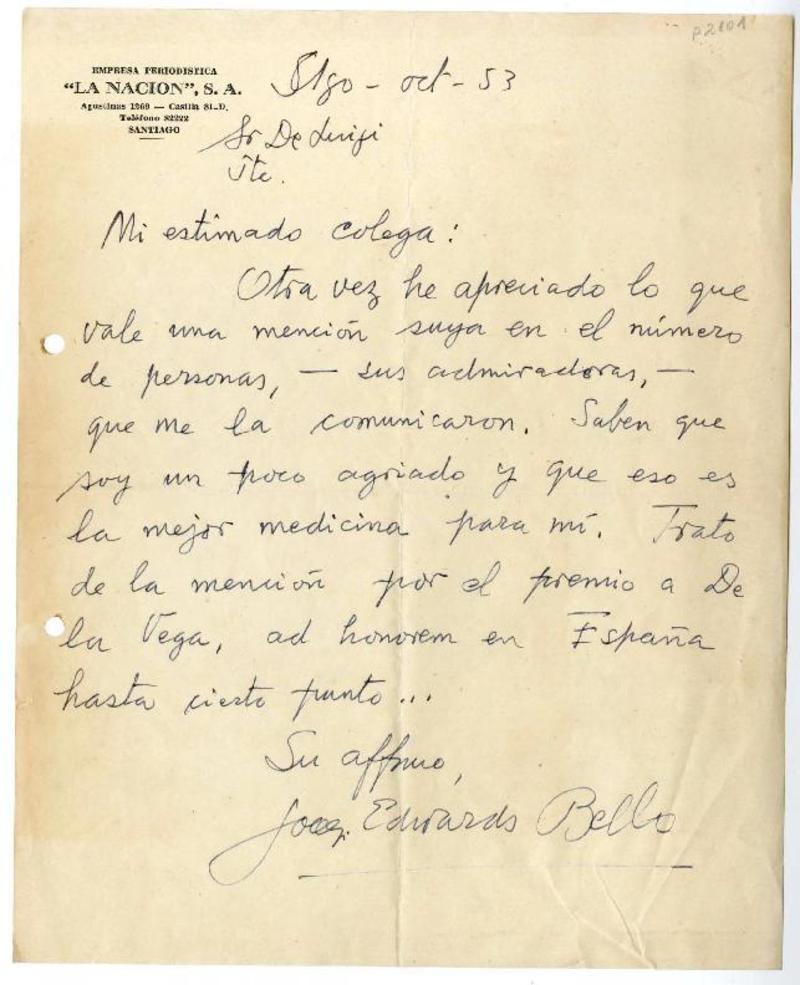 P2101
EMPRESA PERIODISTICA
"LA NACION", S. A.
Agustinas 1269 — Casilla 81-D.
Teléfono 82222
SANTIAGO
Stgo - oct - 53
Sr De Luigi
Pte.
Mi estimado colega:
Otra vez he apreciado lo que
vale una mención suya en el número
de personas, — sus admiradoras, —
que me la comunicaron. Saben que
soy un poco agriado y que eso es
la mejor medicina para mí. Trato
de la mención por el premio a De
la Vega, ad honorem en España
hasta cierto punto...
Su affmo,
Joaq. Edwards Bello